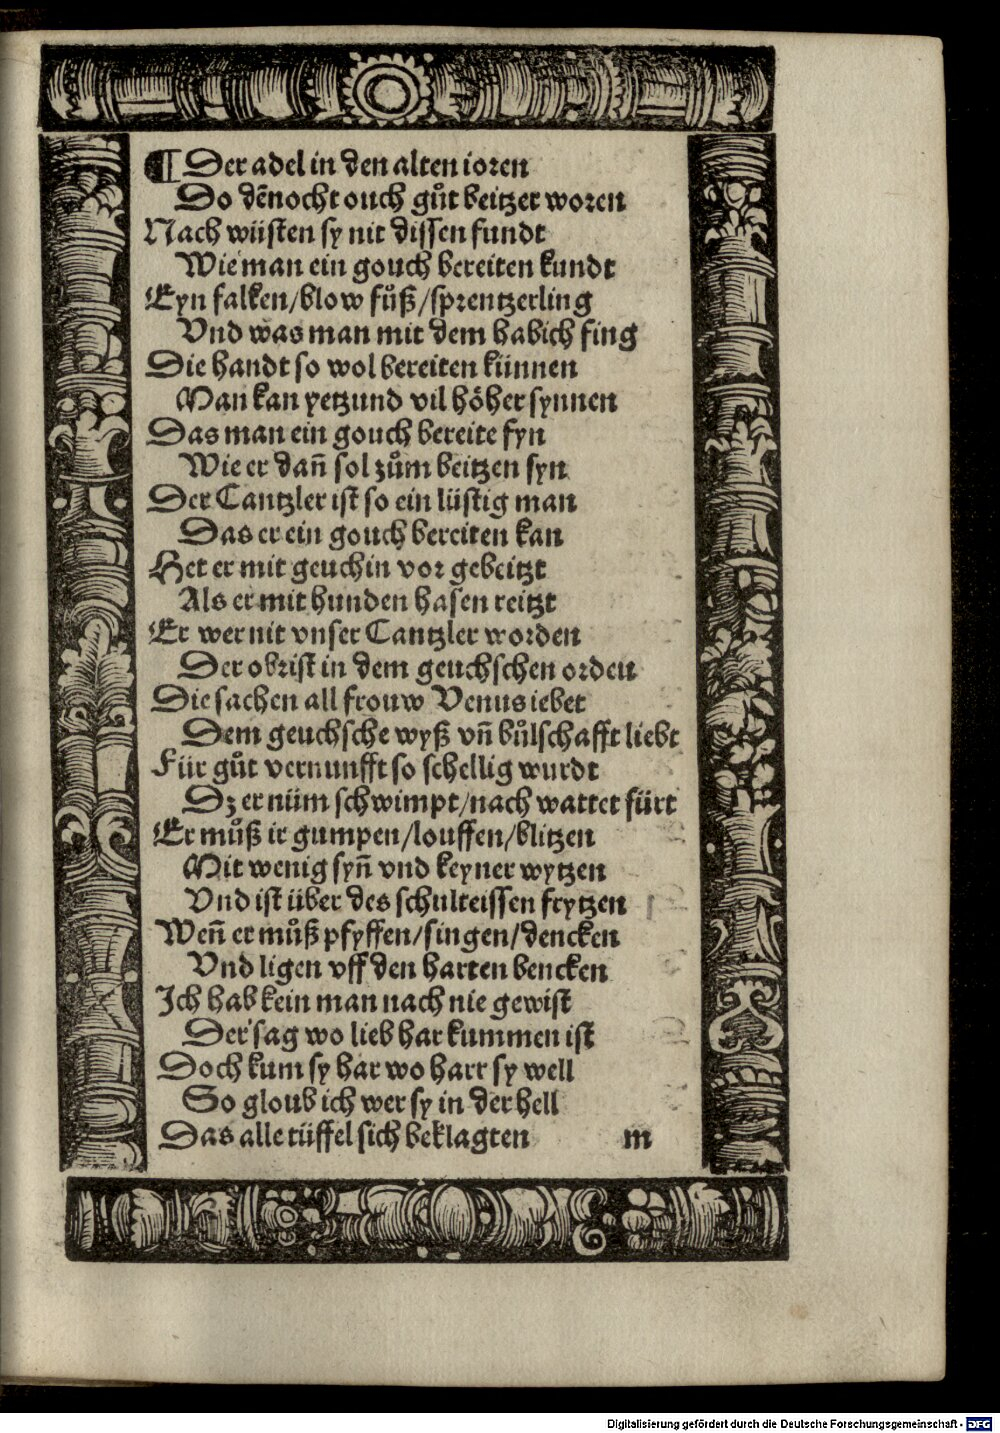 ¶ Der adel in den alten ioren
Do dẽnocht ouch gůt beitzer woren
Nach wüsten sy nit dissen fundt
Wie man ein gouch bereiten kundt
Eyn falken/blow fůß/sprentzerling
Vnd was man mit dem habich fing
Die handt so wol bereiten künnen
Man kan yetzund vil höher synnen
Das man ein gouch bereite fyn
Wie er dañ sol zům beitzen syn
Der Cantzler ist so ein lüstig man
Das er ein gouch bereiten kan
Het er mit geuchin vor gebeitzt
Als er mit hunden hasen reitzt
Er wer nit vnser Cantzler worden
Der obrist in dem geuchschen orden
Die sachen all frouw Venus iebet
Dem geuchsche wyß vñ bůlschafft liebt
Für gůt vernunfft so schellig wurdt
Dz er nüm schwimpt/nach wattet fürt
Er můß ir gumpen/louffen/blitzen
Mit wenig syñ vnd keyner wytzen
Vnd ist über des schulteissen frytzen
Weñ er můß pfyffen/singen/dencken
Vnd ligen vff den harten bencken
Ich hab kein man nach nie gewist
Der sag wo lieb har kummen ist
Doch kum sy har wo harr sy well
So gloub ich wer sy in der hell
Das alle tüffel sich beklagten m
Digitalisierung gefördert durch die Deutsche Forschungsgemeinschaft - DFG